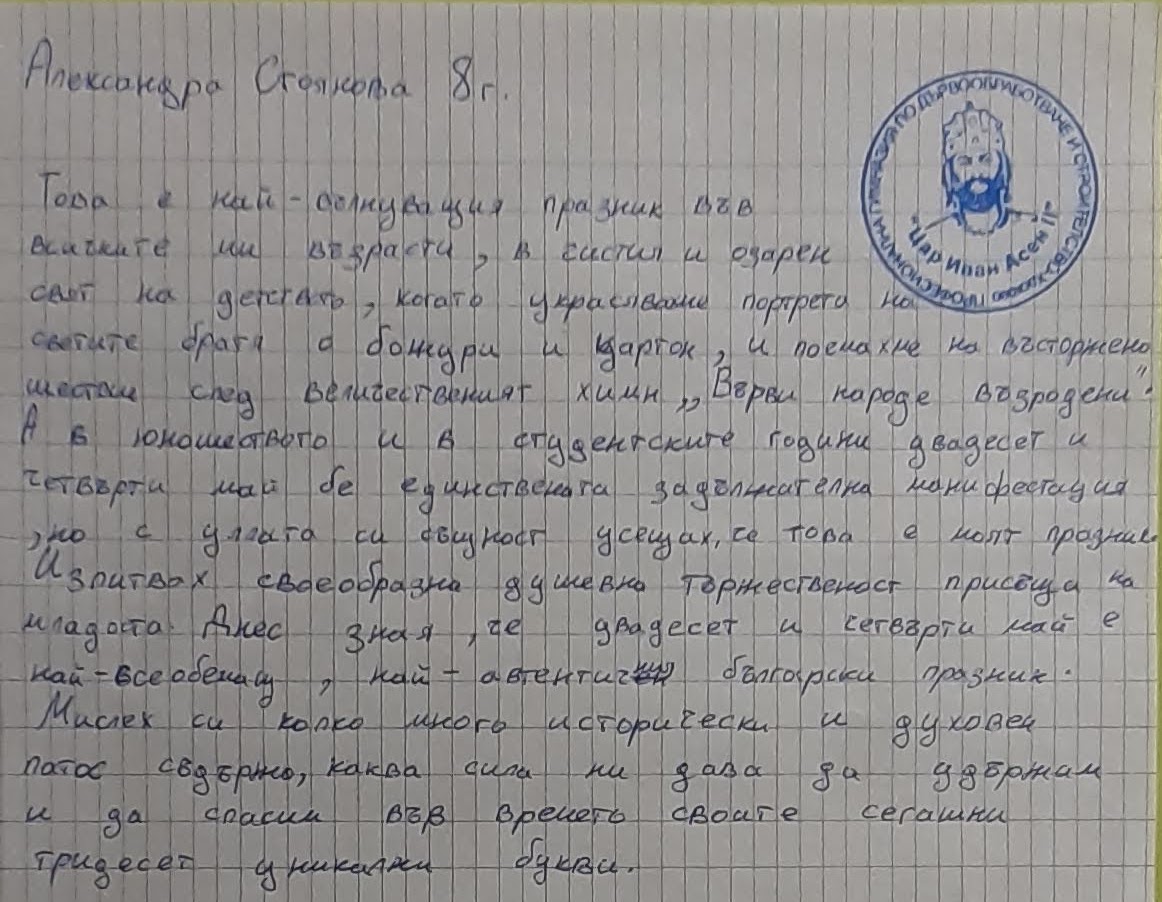 Александра Стоянова 8г.
ПРОФЕСИОНАЛНА ГИМНАЗИЯ ПО ДЪРВООБРАБОТВАНЕ И СТРОИТЕЛСТВО
"Цар Иван Асен II"
Това е най-вълнуващия празник във
всичките ми възрасти, в чистия и озарен
свят на детството, когато украсяваме портрета на
светите братя с божури и картон, и поемахме на възторжено
шествие след величественият химн „Върви народе възродени".
А в юношеството и в студентските години двадесет и
четвърти май бе единствената задължителна манифестация
,но с душата си всъщност усещах, че това е моят празник.
Изпитвах своеобразна душевна тържественост присъща на
младоста. Днес зная, че двадесет и четвърти май е
най-всеобемащ, най-автентичния български празник.
Мислех си колко много исторически и духовен
патос съдържа, каква сила ни дава да удържам
и да спасим във времето своите сегашни
тридесет уникални букви.